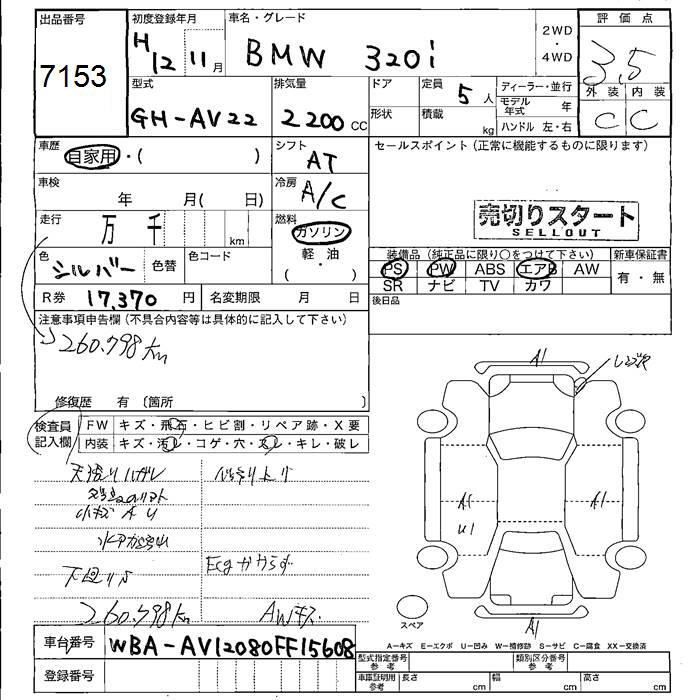 出品番号
7153
初度登録年月
H12 11月
車名・グレード
BMW 320i
2WD
・
4WD
評価点
3,5
外装 内装
C C
型式
GH-AV22
排気量
2200 CC
ドア
形状
定員
5 人
積載
kg
ディーラー・並行
モデル年式 年
ハンドル 左・右
車歴
自家用・( )
シフト
AT
セールスポイント (正常に機能するものに限ります)
車検
年 月( 日)
冷房
A/C
売切りスタート
SELLOUT
走行
万 千 km
燃料
ガソリン
軽・油
( ・ )
色
シルバー 色替
色コード
装備品 (純正品に限り○をつけて下さい)
PS PW ABS エアB AW
SR ナビ TV カワ
新車保証書
有・無
R券 17,370 円
名変期限 月 日
後日品
注意事項申告欄 (不具合内容等は具体的に記入して下さい)
260.798 km
修復歴 有 〔箇所 〕
検査員記入欄
FW キズ・飛石・ヒビ割・リペア跡・X要
内装 キズ・汚レ・コゲ・穴・スレ・キレ・破レ
小キズ A U
Ecgかからず
260.798 km
AWキズ
A1
A1
U1
A1
A1
スペア
A-キズ E-エクボ U-凹み W-補修跡 S-サビ C-腐食 XX-交換済
車台番号
WBA-AV12080FF15608
登録番号
型式指定番号
参考
類別区分番号
参考
車庫証明用
参考
長さ cm
幅 cm
高さ cm